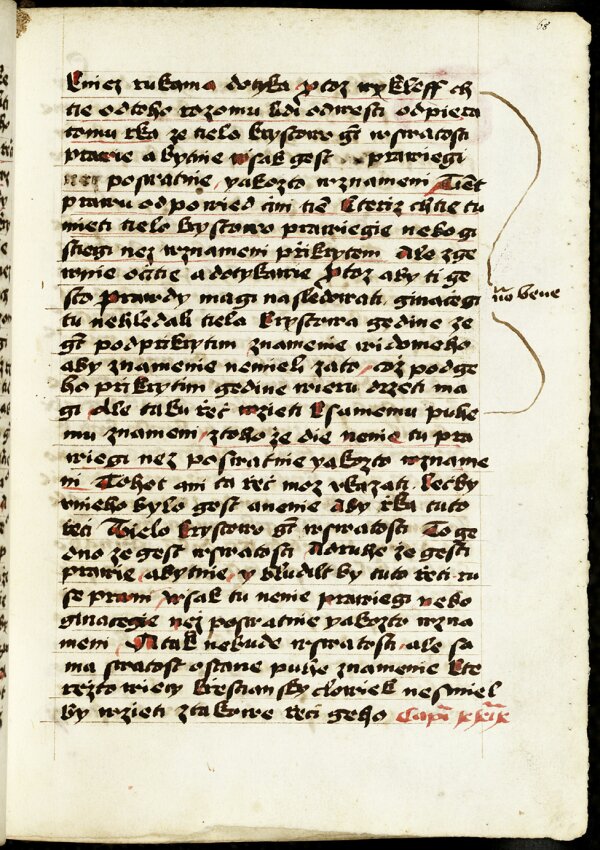 68
kniez rukama dotyka protoz wykleff ch
tie odtoho rozomu lidi odwesti odpiera
tomu rka ze tielo krystowo gt wswatosti
prawie a bytnie wsak gest prawiegi
poswatnie yakozto wznameni
prawu odpowied cini tiem kteriz chtie tu
mieti tielo krystowo prawiegie nebo gi
stiegi nez wznameni přikrytem Ale zge
wnie ocitie a dotykawie protoz aby ti ge
sto prawdy magi nasledowati ginacegi
tu nehledali tiela krystowa gedine ze
gt podprikrytim znamenie widomeho
aby znamenie nemieli zato coz podge
ho prikrytim gedine wieru drzeti ma
gi Ale taku řec wzieti ksamemu puhe
mu znameni ztoho že die nenie tu pra
wiegi nez poswatnie yakozto wzname
ni Tohot ani ta řec moz vkazati lecby
wnieho bylo gest a nenie Aby rka tuto
řeci Tielo krystowo gt wswatosti To ge
dno ze gest wswatosti Adruhe že gesti
prawie abytnie y bludilt by tuto řeci ru
se prwni wsak tu nenie prawiegi nebo
ginacegie než poswatnie yakozto wzna
meni A tak nebude wswatosti ale sa
ma swatost ostane puhe znamenie kte
rezto wiery křestiansky clowiek nesmiel
by wzieti ztakowe řeci geho
no bene